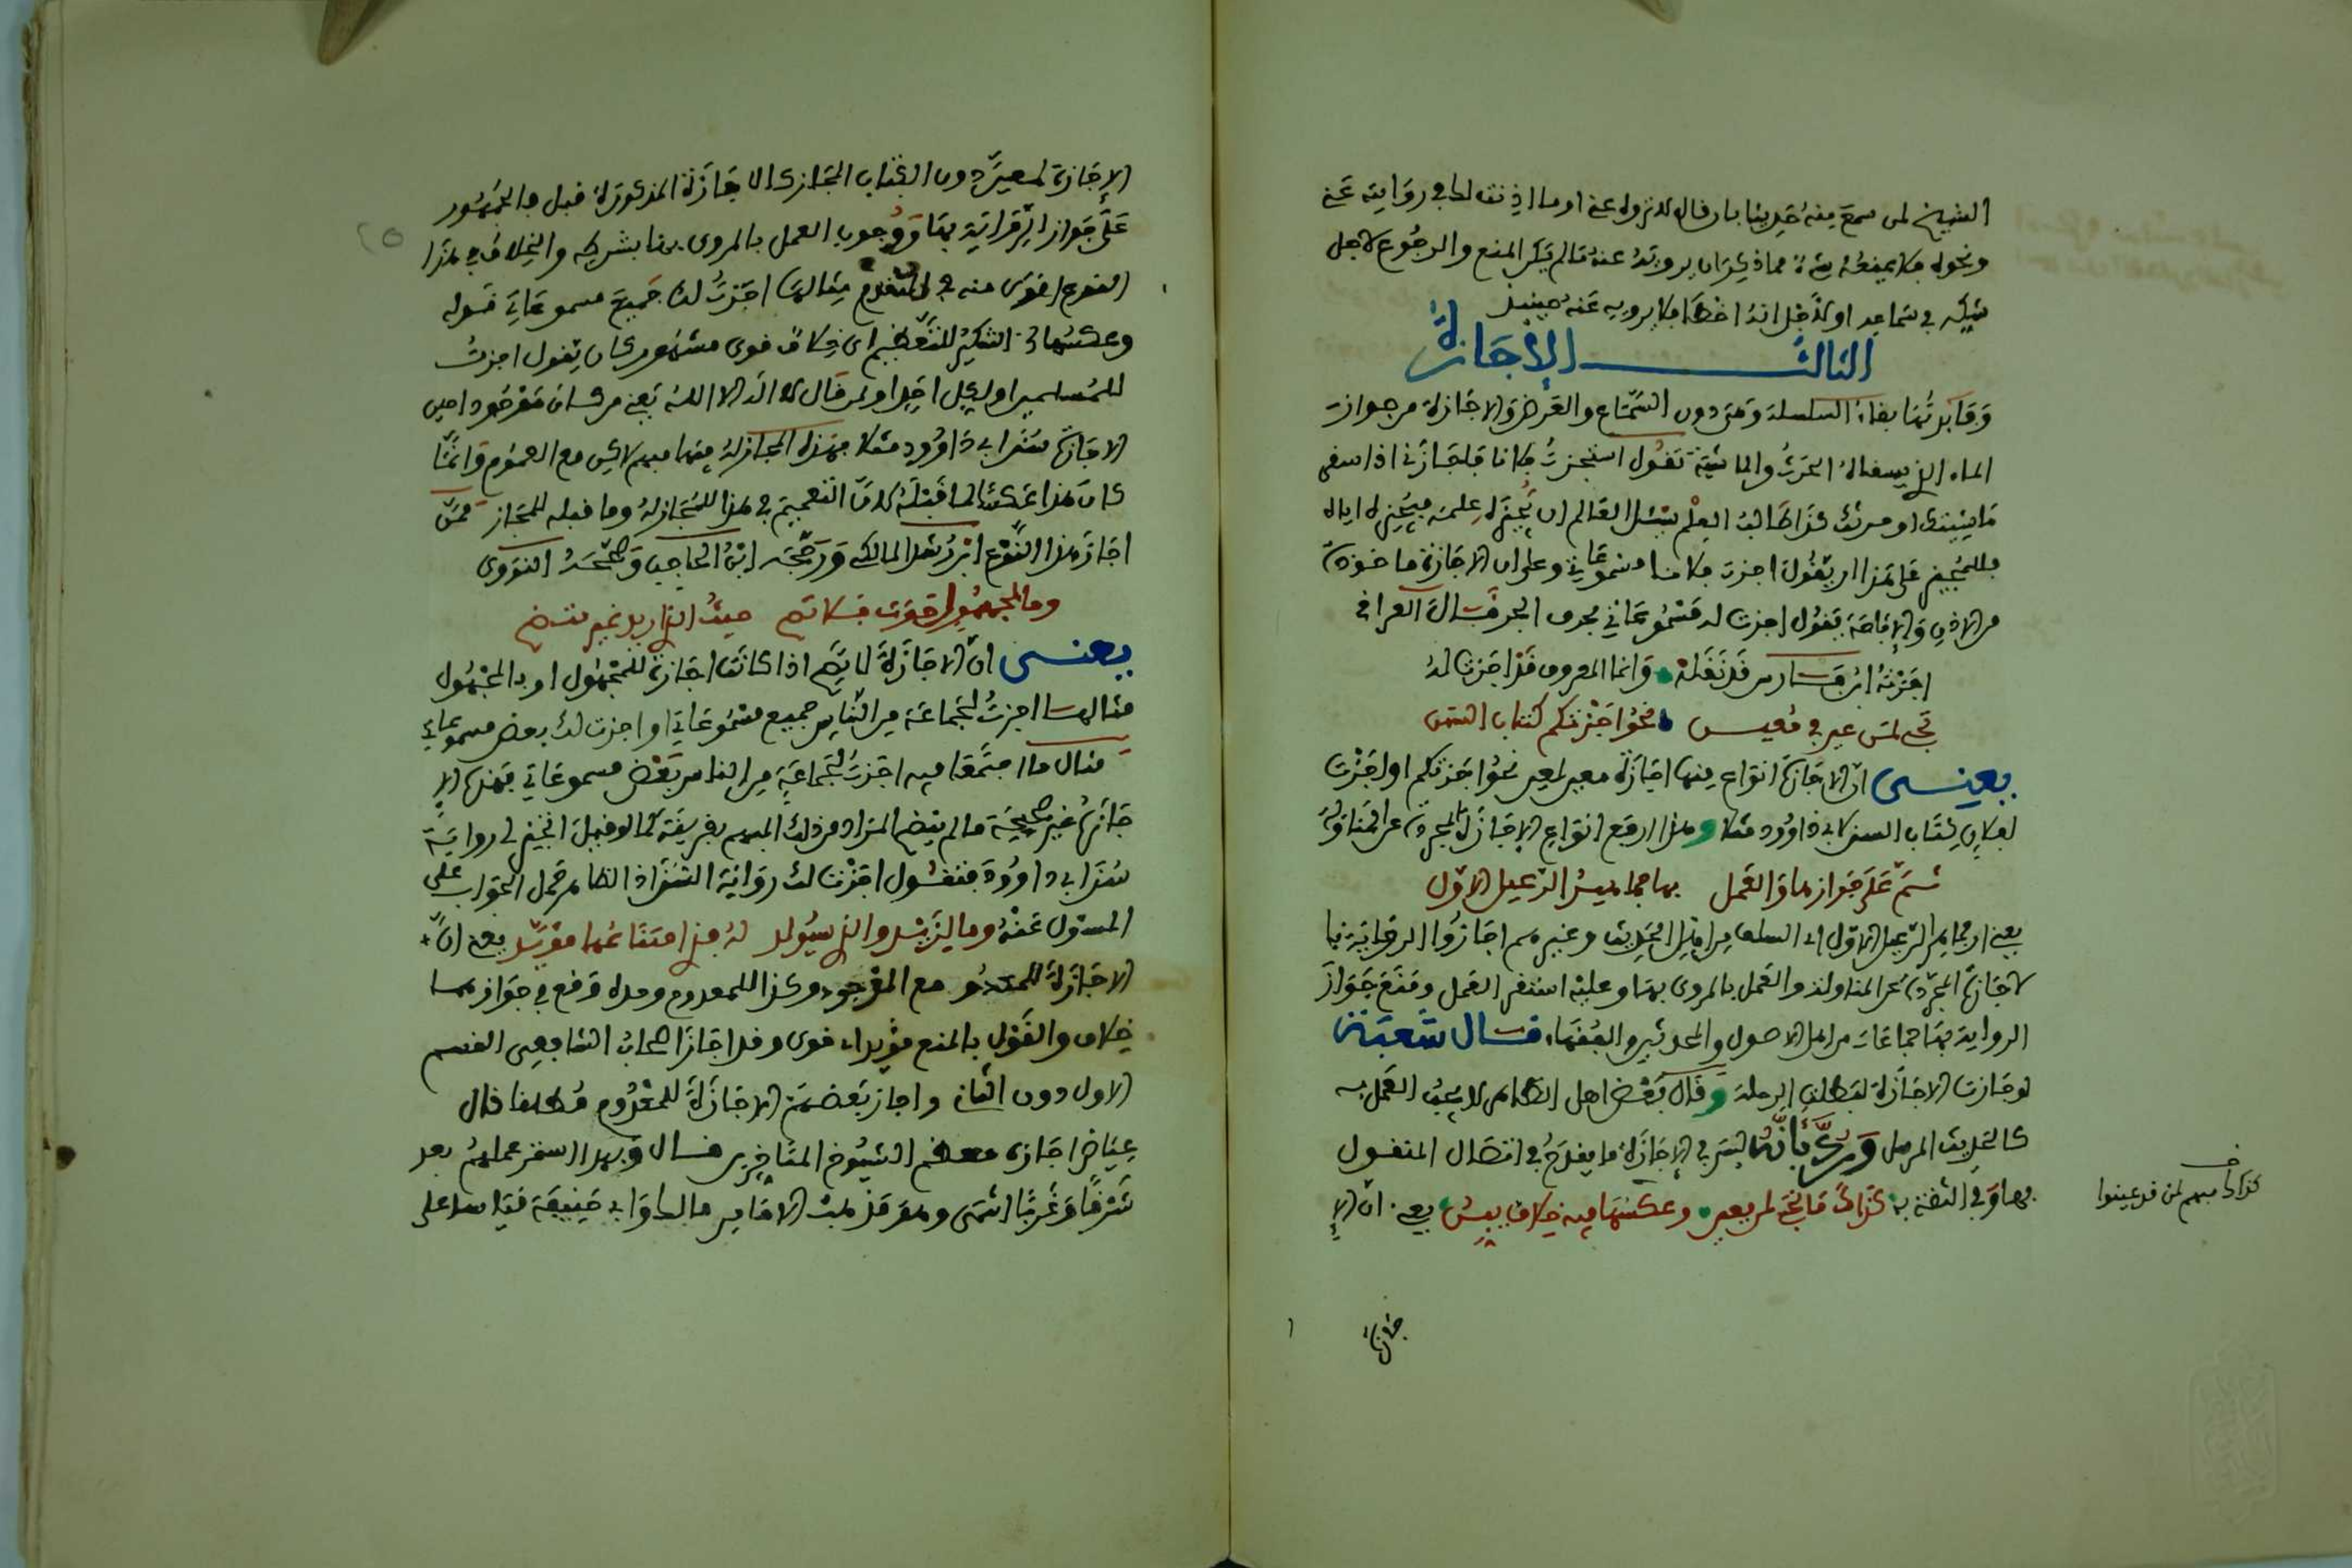 الشيخ لمن سمع منه حديثا بان قال له لا تروه عني او ما اذنت لك في روايته عني
ونحوه فلا يمنعه شيء مما ذكر ان يرويه عنه ما لم يكن المنع والرجوع لاجل
شكه في سماعه او لاجل انه اخطا فلا يرويه عنه حينئذ
الثالث الإجازة
وفايدتها بقاء السلسلة وهي دون السماع والعرض والاجازة من جواز
الماء الذي يسقاه الحرث والماشية تقول استجزت فلانا فاجازني اذا سقى
ماشيتك او حرثك كذا طالب العلم يسئل العالم ان يجيزه علمه فيجيزه اياه
فللمجيز على هذا ان يقول اجزت فلانا مسموعاتي وعلى ان الاجازة ماخوذة
من الاذن والإباحة يقول اجزت له مسموعاتي بحرف الجر قال العراقي
اجزته ابن فارس قد نقله وانما المعروف قد اجزت له
لمن عين في معين نحو اجزتكم كتاب السنن
يعني ان الاجازة انواع منها اجازة معين لمعين نحو اجزتكم او اجزت
لفلان كتاب السنن لابي داوود مثلا وهذا ارفع انواع الإجازة المجردة عن المناولة
ثم على جوازها والعمل بها جماهير الرعيل الاول
يعني ان جماهير الرعيل الاول اي السلف من اهل الحديث وغيرهم اجازوا الرواية با
لاجازة المجردة عن المناولة والعمل بالمروي بها وعليه استقر العمل ومنع جواز
الرواية بها جماعات من اهل الاصول والمحدثين والفقهاء قال شعبة
لو جازت الاجازة لبطلت الرحلة وقال بعض اهل الظاهر لا يجب العمل به
كالحديث المرسل ورد بأنه ليس في الإجازة ما يقدح في اتصال المنقول
بها وفي الثقة به كذاك مابحي لم يعين وعكسها فيه خلاف بين يعني ان الإ
كذاك مبهم لمن قد عينوا
جازة
الإجازة لمعين دون الكتاب المجاز كالاجازة المذكورة قبل فالجمهور
على جواز الرواية بها ووجوب العمل بالمروي بها بشرطه والخلاف في هذا
النوع اقوى منه في المتقدم مثالها اجزت لك جميع مسموعاتي قوله
وعكسها التنكير للتعظيم اي خلاف قوي مشهور كان يقول اجزت
للمسلمين او لكل احد او لمن قال لا اله الا الله يعني من كان موجودا حين
الاجازة سنن ابي داوود مثلا فهذه المجاز له فيها مبهم لاكن مع العموم وانما
كان هذا عكسا لما قبله لان التعميم في هذا للمجاز له وما قبله للمجاز فمن
اجاز هذا النوع ابن رشد المالكي ورجحه ابن الحاجب وصححه النووي
وما لمجهول حيث المراد غير متضح
يعني ان الاجازة لا تصح اذا كانت اجازة للمجهول او بالمجهول
مثالها اجزت لجماعة من الناس جميع مسموعاتي او اجزت لك بعض مسموعاتي
مثال ما اجتمعا فيه اجزت لجماعة من الناس بعض مسموعاتي فهذه الإ
جازة غير صحيحة ما لم يتضح المراد من ذلك المبهم بقرينة كما لو قيل اتجيز لي رواية
سنن ابي داوود فتقول اجزت لك رواية السنن اذ الظاهر حمل الجواب على
المسئول عنه وما لزيد والذي سيولد له فذا امتناعها مؤيد يعني ان
الاجازة للمعدوم مع الموجود وكذا للمعدوم وحده وقع في جوازها
خلاف والقول بالمنع مؤيد اي قوي وقد اجاز اصحاب الشافعي القسم
الاول دون الثاني واجاز بعضهم الاجازة للمعدوم مطلقا قال
عياض اجازه معظم الشيوخ المتاخرين قال وبهذا استمر عملهم بعد
شرقا وغربا انتهى وهو مذهب الامامين مالك وابي حنيفة قياسا على